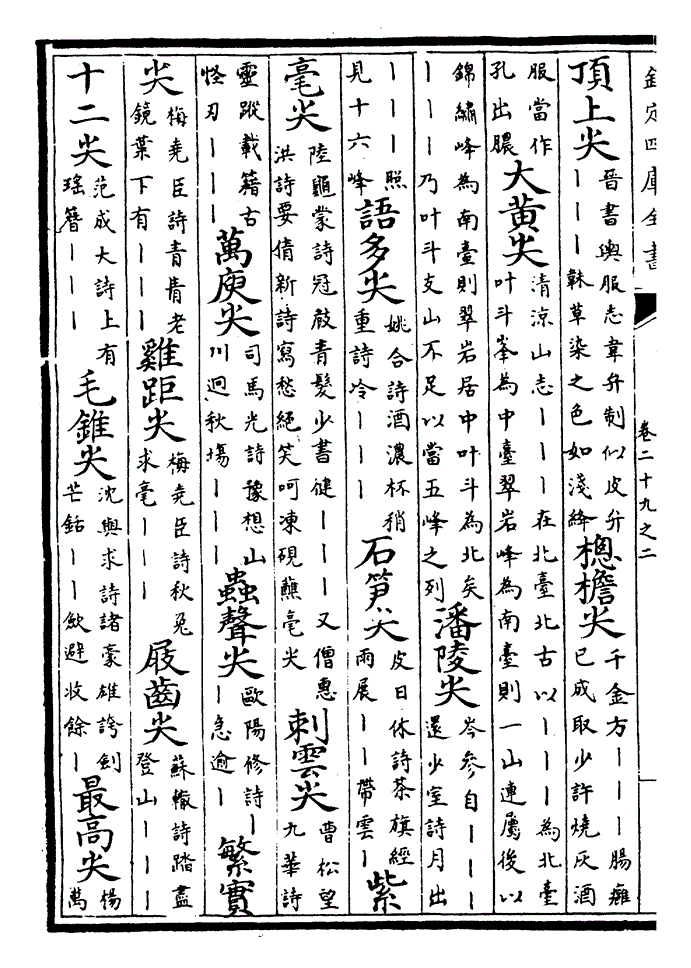 欽定四庫全書 卷二十九之二
頂上尖晉書輿服志韋弁制似皮弁｜｜｜韎草染之色如淺絳樬檐尖千金方｜｜｜腸癰已成取少許燒灰酒
服當作孔出膿大黃尖清涼山志｜｜｜在北臺北古以｜｜｜為北臺叶斗峯為中臺翠岩峰為南臺則一山連屬後以
錦繡峰為南臺則翠岩居中叶斗為北矣｜｜｜乃叶斗支山不足以當五峰之列潘陵尖岑參自｜｜｜還少室詩月出
｜｜｜照見十六峰語多尖姚合詩酒濃杯稍重詩冷｜｜｜石笋尖皮日休詩茶旗經雨展｜｜帶雲｜紫
毫尖陸龜蒙詩冠敧青髮少書健｜｜｜又僧惠洪詩要倩新詩寫愁絕笑呵凍硯蘸毫尖刺雲尖曹松望九華詩
靈蹤載籍古怪刃｜｜｜萬庾尖司馬光詩豫想山川迥秋場｜｜｜蟲聲尖歐陽修詩｜｜急逾｜繁實
尖梅堯臣詩青青老鏡葉下有｜｜｜雞距尖梅堯臣詩秋兔求毫｜｜｜屐齒尖蘇轍詩踏盡登山｜｜｜
十二尖范成大詩上有瑤簪｜｜｜毛錐尖沈與求詩諸豪雄誇劍芒銛｜｜斂避收餘｜最高尖楊萬